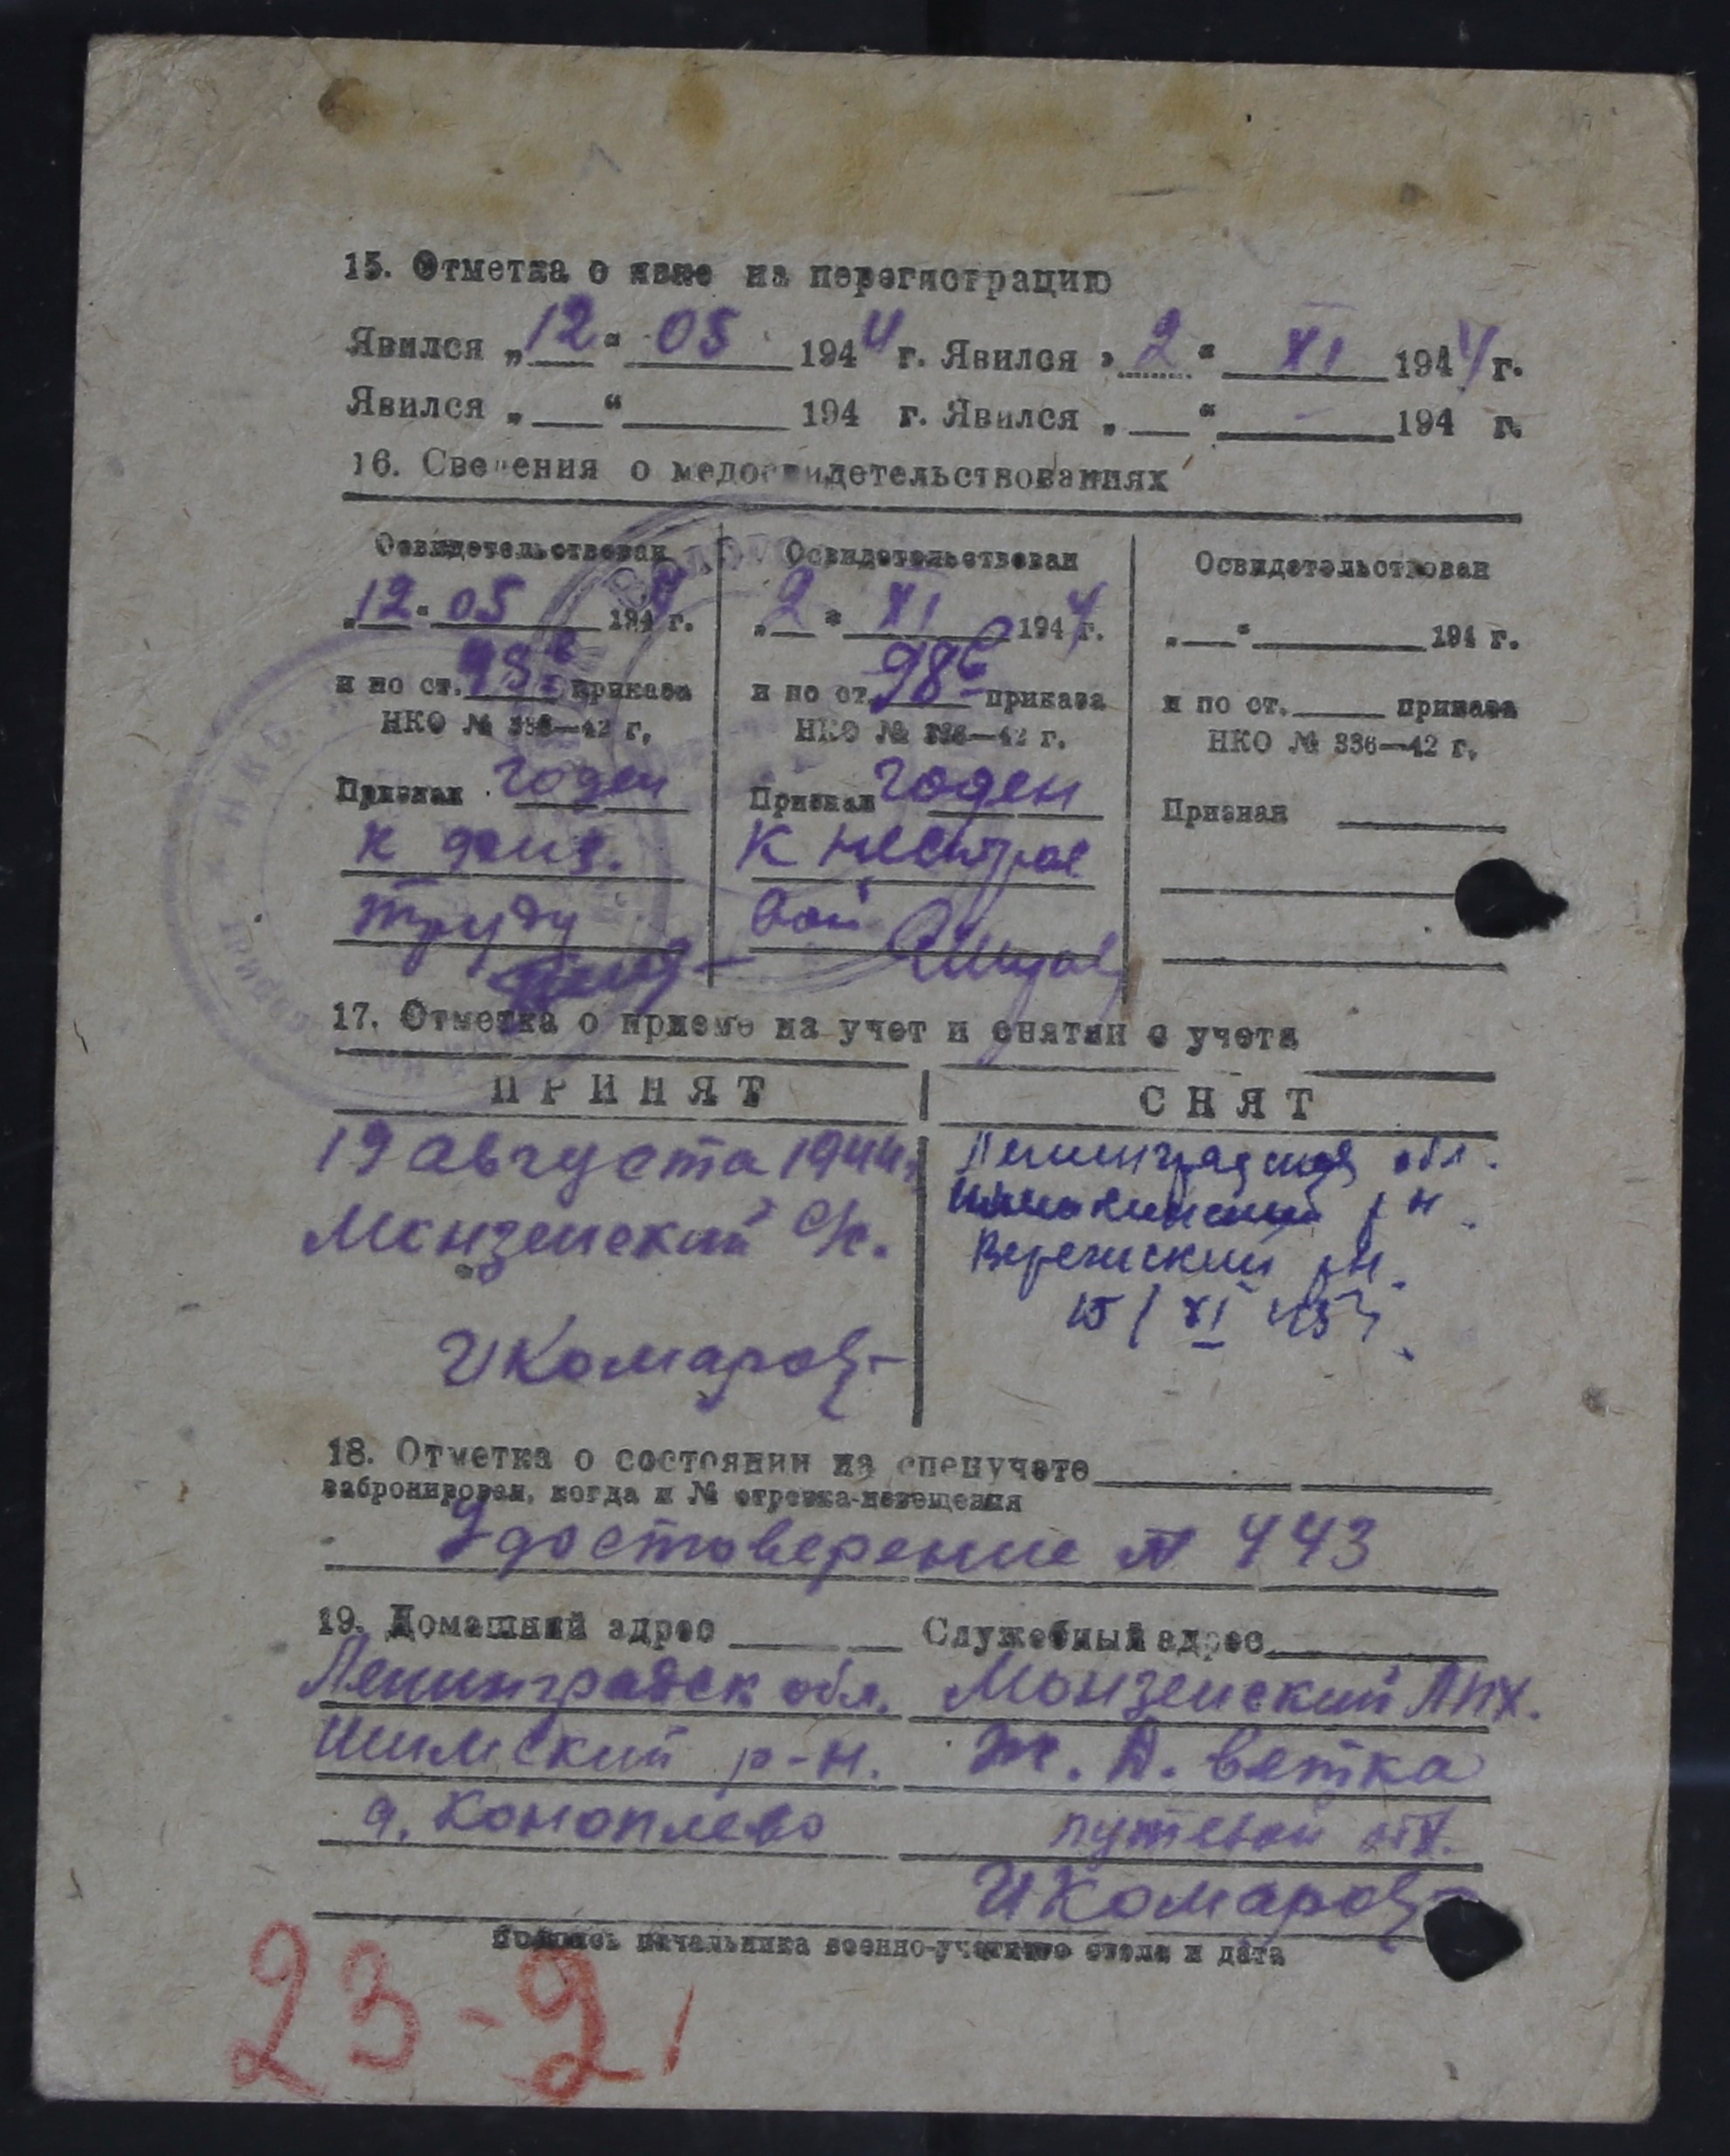 15. Отметка о явке на перегистрацию
Явился „12“ 05 1944 г. Явился „2“ XI 1944 г.
Явился „ “ 194 г. Явился „ “ 194 г.
16. Сведения о медосвидетельствованиях
Освидетельствован
„12“ 05 1944 г.
и по ст. 98б приказа
НКО № 336—42 г.
Признан годен
к физ.
труду
Освидетельствован
„2“ XI 1944 г.
и по ст. 98б приказа
НКО № 336—42 г.
Признан годен
к нестрое
вой
Освидетельствован
„ “ 194 г.
и по ст. приказа
НКО № 336—42 г.
Признан
17. Отметка о приеме на учет и снятии с учета
ПРИНЯТ
19 августа 1944 г.
Монзенский с/с.
ИКомаров
СНЯТ
Ленинградская обл.
р н.
рн.
15/XI
18. Отметка о состоянии на спецучете
забронирован, когда и № отрезка-извещения
Удостоверение № 443
19. Домашний адрес
Ленинградск обл.
Шимский р-н.
д. Коноплево
Служебный адрес
Монзенский ЛПХ.
Ж. Д. ветка
путевой отд.
ИКомаров
Подпись начальника военно-учетного стола и дата
23-21